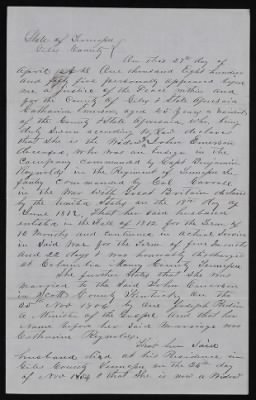 State of Tennessee
Giles County
On this 27th day of
April A.D. One thousand Eight hundred
and fifty five personally appeared before
me a Justice of the Peace within and
for the County of Giles & State aforesaid
Catharine Emerson, aged 65 years a resident
of the County & State aforesaid who being
duly sworn according to Law declares
that She is the Widow John Emerson
deceased, who was an
Company commanded by Capt Benjamin
Reynolds in the Regiment of Tennessee In
fantry Commanded by Col
in the War with Great Britain declared
by the United States on the 18th day of
June 1812. That her said husband
enlisted in the State of 1812 for the term of
10 Months and continued in Actual Service
in Said War for the Term of five Months
and 22 days & was honorably discharged
at Columbia Maury County Tennessee
She further States that She was
married to the Said John Emerson
in Scott County Kentucky on the
25th Nov 1806 by one Joseph
a Minister of the Gospel and that her
Name before her Said Marriage was
Catharine Reynolds.
That her Said
husband died at his Residence in
Giles County Tennessee on the 24th day
of Nov & that She is now a Widow